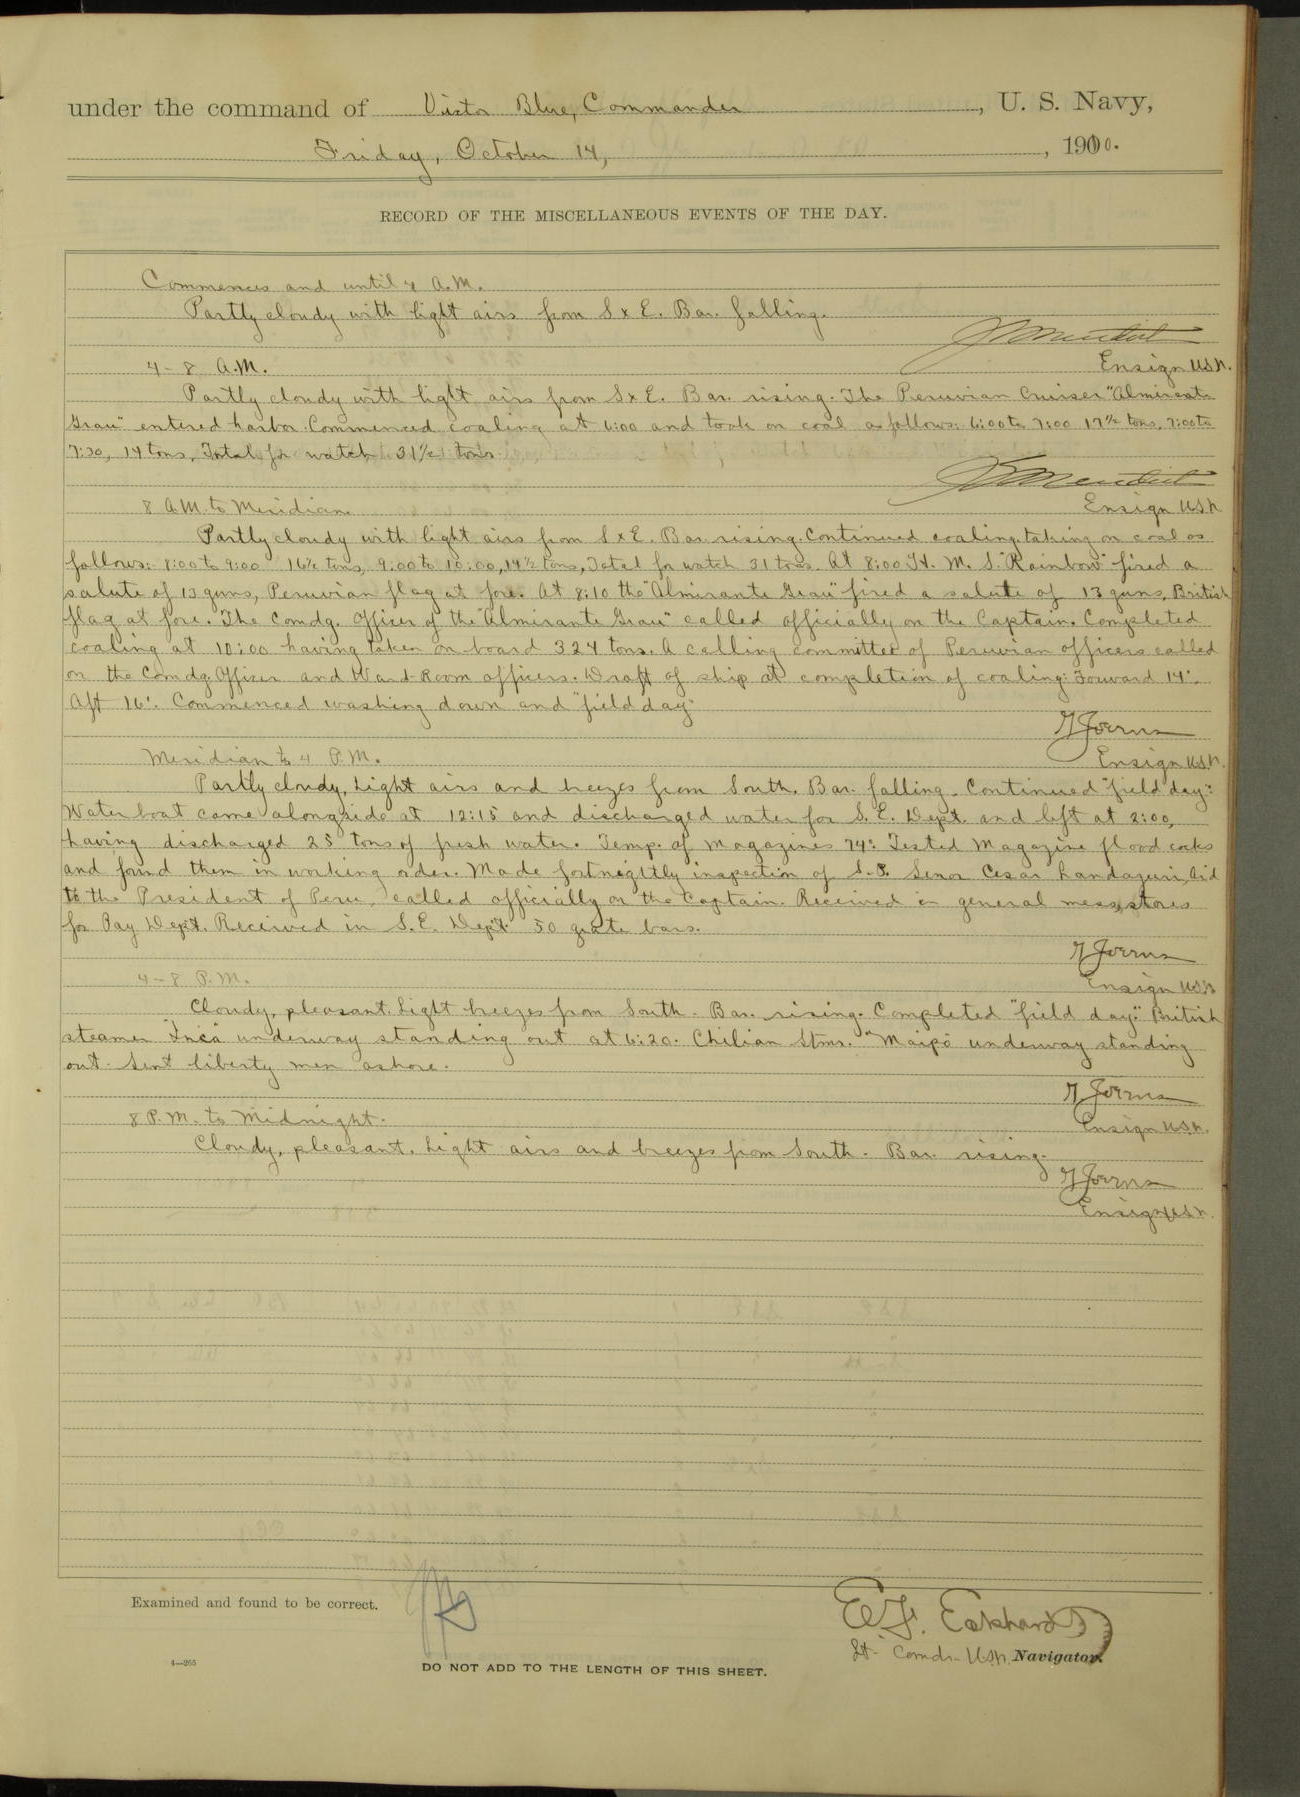 under the command of Victor Blue, Commander, U. S. Navy,
Friday, October 14, 1910.
RECORD OF THE MISCELLANEOUS EVENTS OF THE DAY.
Commences and until 4 A.M.
Partly cloudy with light airs from S x E. Bar. falling.
Ensign U.S.N.
4-8 A.M.
Partly cloudy with light airs from S x E. Bar. rising. The Peruvian Cruiser "Almirante
Grau" entered harbor. Commenced coaling at 6:00 and took on coal as follows: 6:00 to 7:00 17½ tons, 7:00 to
7:30, 14 tons, Total for watch 31½ tons.
Ensign U.S.N.
8 A.M. to Meridian.
Partly cloudy with light airs from S x E. Bar. rising. Continued coaling taking on coal as
follows: 8:00 to 9:00 16½ tons, 9:00 to 10:00, 14½ tons, Total for watch 31 tons. At 8:00 H. M. S. "Rainbow" fired a
salute of 13 guns, Peruvian flag at fore. At 8:10 the "Almirante Grau" fired a salute of 13 guns, British
flag at fore. The Comdg. Officer of the "Almirante Grau" called officially on the Captain. Completed
coaling at 10:00 having taken on board 324 tons. A calling committee of Peruvian officers called
on the Comdg. Officer and Ward-Room officers. Draft of ship at completion of coaling: Forward 14'.
Aft 16'. Commenced washing down and "field day."
G Joerns
Ensign U.S.N.
Meridian to 4 P.M.
Partly cloudy, Light airs and breezes from South. Bar. falling. Continued "field day".
Water boat came alongside at 12:15 and discharged water for S. E. Dept. and left at 2:00,
having discharged 25 tons of fresh water. Temp. of magazines 74°. Tested Magazine flood cocks
and found them in working order. Made fortnightly inspection of S.P. Senor Cesar Landazuri, Aid
to the President of Peru, called officially on the Captain. Received in general mess, stores
for Pay Dept. Received in S.E. Dept. 50 grate bars.
G Joerns
Ensign U.S.N.
4-8 P.M.
Cloudy, pleasant. Light breezes from South. Bar. rising. Completed "field day." British
steamer "Inca" underway standing out at 6:20. Chilian Stmr. "Maipo" underway standing
out. Sent liberty men ashore.
G Joerns
Ensign U.S.N.
8 P.M. to Midnight.
Cloudy, pleasant. Light airs and breezes from South. Bar. rising.
G Joerns
Ensign U.S.N.
Examined and found to be correct.
E.F. Eckhardt
Lt. Comdr. U.S.N. Navigator.
4—265
DO NOT ADD TO THE LENGTH OF THIS SHEET.